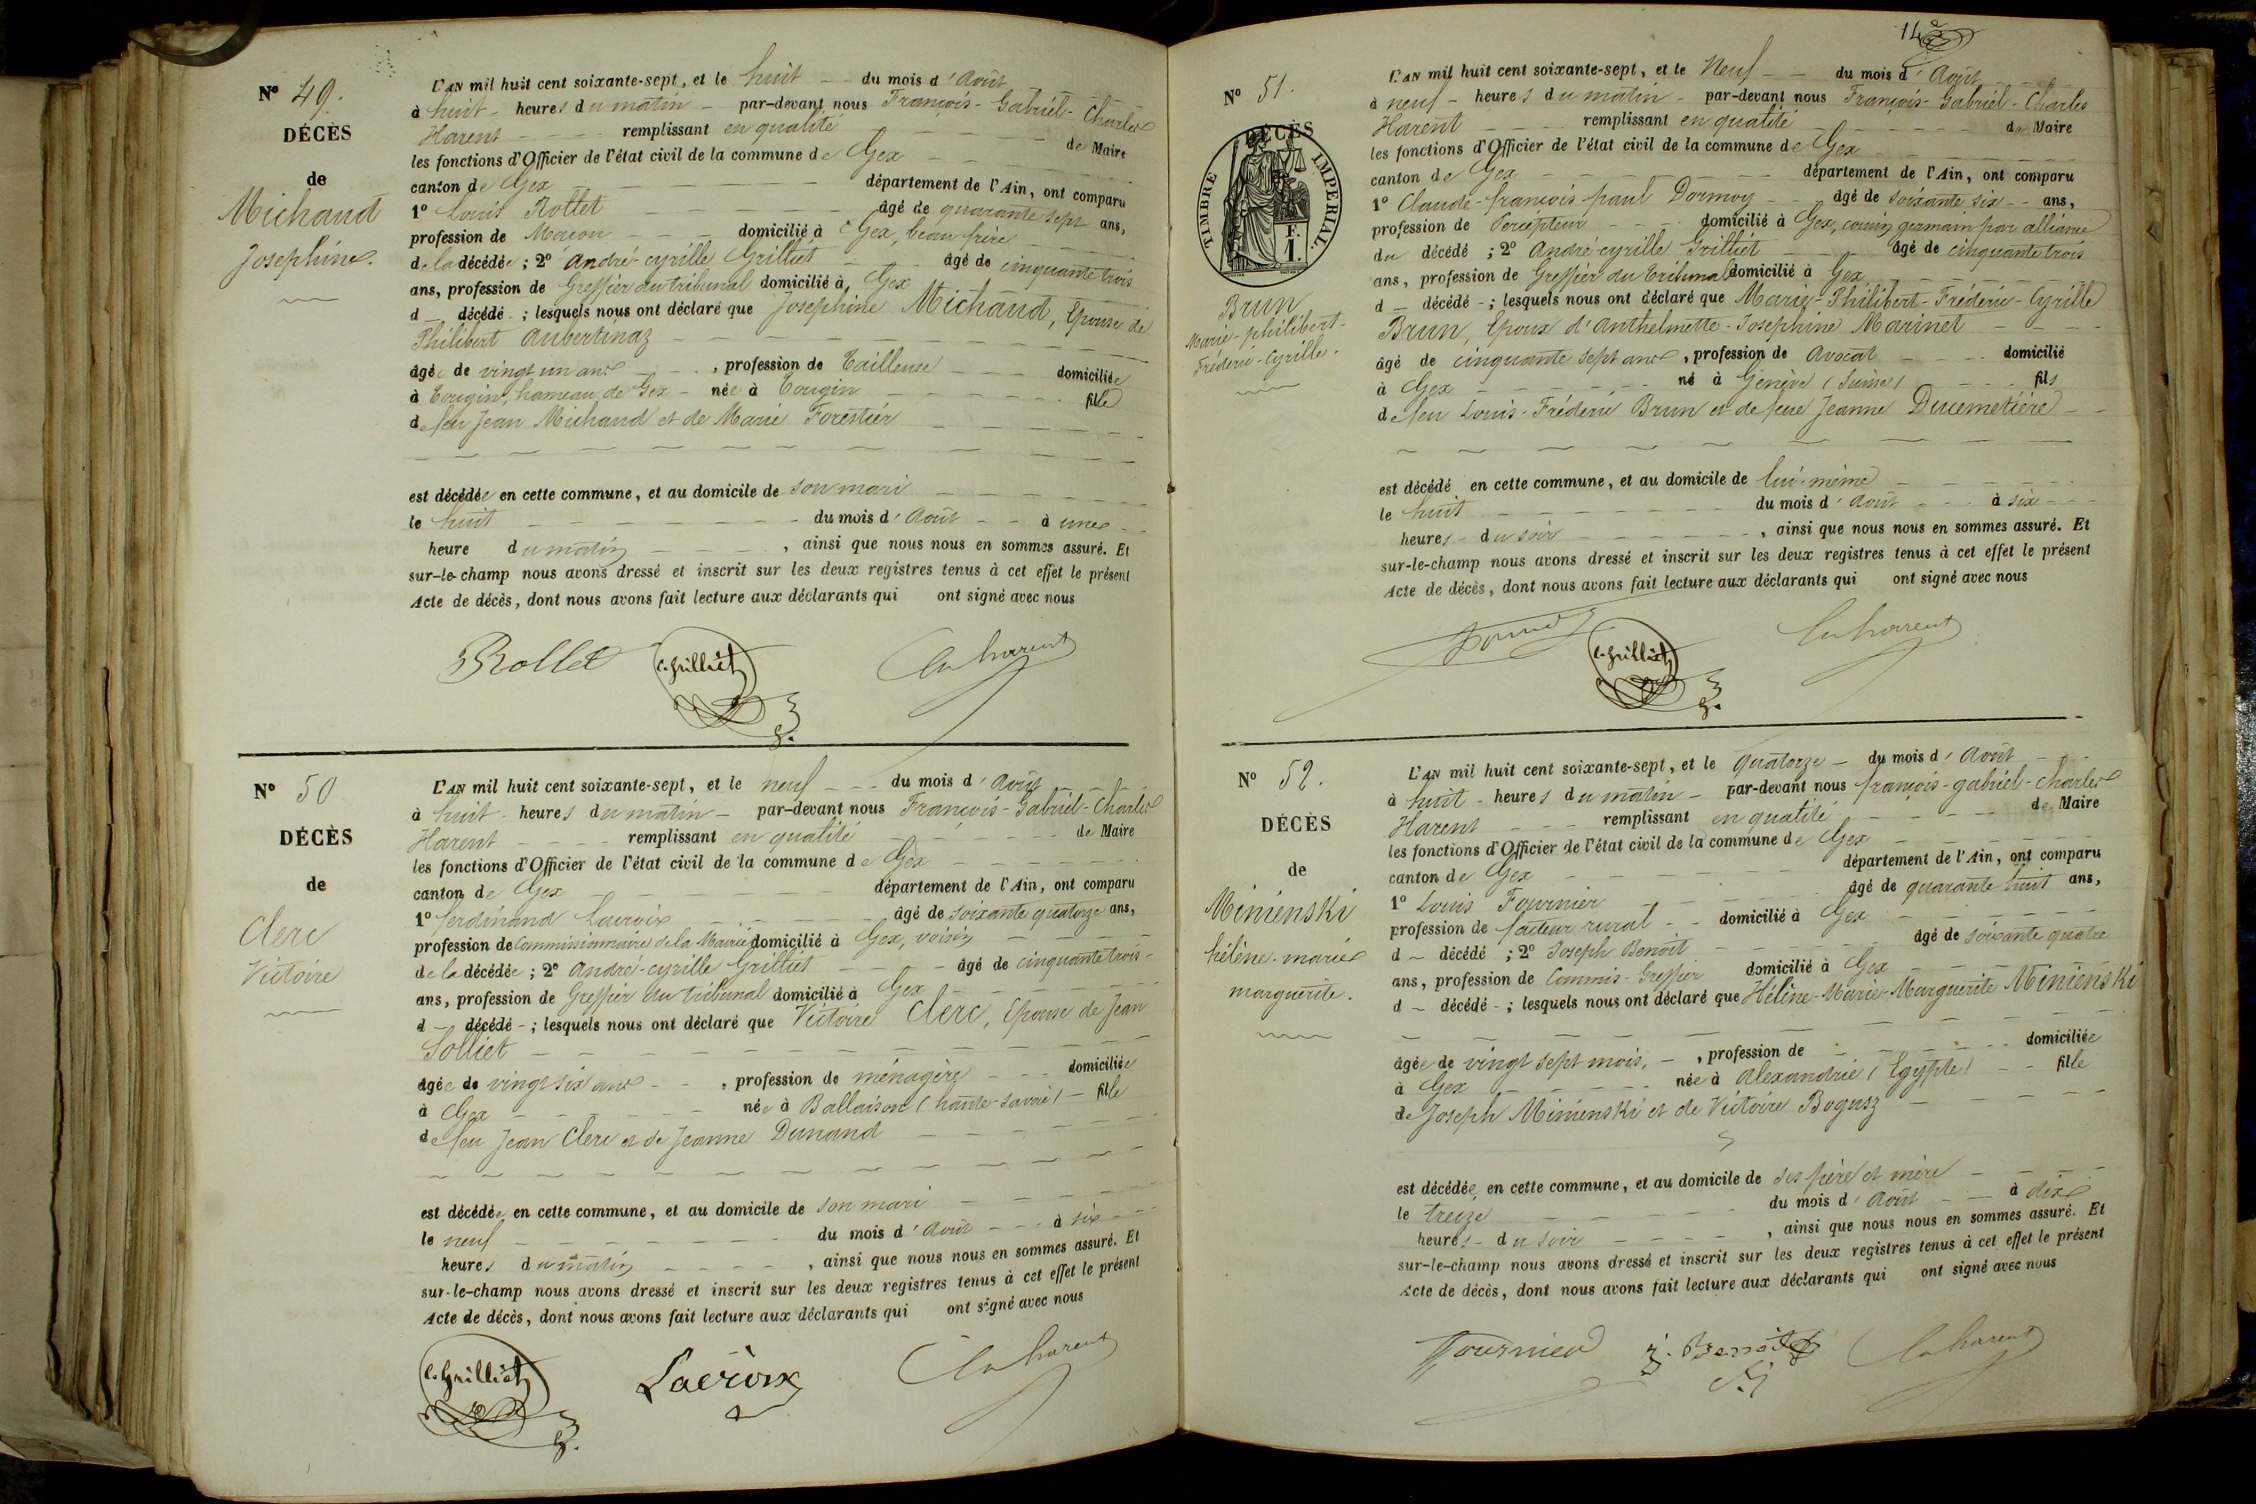 N° 49.
DÉCÈS
de
Michaud
Joséphine.
L'AN mil huit cent soixante-sept, et le huit du mois d'Août
à huit heures du matin par-devant nous François-Gabriel-Charles
Harent remplissant en qualité de Maire
les fonctions d'Officier de l'état civil de la commune de Gex
canton de Gex département de l'Ain, ont comparu
1° Louis Rollet âgé de quarante sept ans,
profession de Maçon domicilié à Gex, beau frère
de la décédée ; 2° André-cyrille Grilliet âgé de cinquante trois
ans, profession de Greffier du tribunal domicilié à Gex
d décédé ; lesquels nous ont déclaré que Joséphine Michaud, Epouse de
Philibert Aubertinaz
âgée de vingt un ans, profession de Tailleuse domiciliée
à Tougin, hameau de Gex née à Tougin fille
de feu Jean Michaud et de Marie Forestier
est décédée en cette commune, et au domicile de son mari
le huit du mois d'Août à une
heure du matin, ainsi que nous nous en sommes assuré. Et
sur-le-champ nous avons dressé et inscrit sur les deux registres tenus à cet effet le présent
Acte de décès, dont nous avons fait lecture aux déclarants qui ont signé avec nous
Rollet C. Grilliet Ch harent
N° 50
DÉCÈS
de
Clerc
Victoire
L'AN mil huit cent soixante-sept, et le neuf du mois d'Août
à huit heures du matin par-devant nous François-Gabriel-Charles
Harent remplissant en qualité de Maire
les fonctions d'Officier de l'état civil de la commune de Gex
canton de Gex département de l'Ain, ont comparu
1° ferdinand Lacroix âgé de soixante quatorze ans,
profession de Commissionnaire de la Mairie domicilié à Gex, voisin
de la décédée ; 2° André-cyrille Grilliet âgé de cinquante trois
ans, profession de Greffier du tribunal domicilié à Gex
d décédé ; lesquels nous ont déclaré que Victoire Clerc, Epouse de Jean
Solliet
âgée de vingt six ans, profession de ménagère domiciliée
à Gex née à Ballaison (haute-savoie) fille
de feu Jean Clerc et de Jeanne Dunand
est décédée en cette commune, et au domicile de son mari
le neuf du mois d'Août à six
heures du matin, ainsi que nous nous en sommes assuré. Et
sur-le-champ nous avons dressé et inscrit sur les deux registres tenus à cet effet le présent
Acte de décès, dont nous avons fait lecture aux déclarants qui ont signé avec nous
C. Grilliet Lacroix Ch harent
N° 51.
DÉCÈS
TIMBRE IMPERIAL.
F. 1.
Brun
Marie-philibert-
Fréderic-Cyrille.
L'AN mil huit cent soixante-sept, et le Neuf du mois d'Août
à neuf heures du matin par-devant nous François-Gabriel-Charles
Harent remplissant en qualité de Maire
les fonctions d'Officier de l'état civil de la commune de Gex
canton de Gex département de l'Ain, ont comparu
1° Claude-françois-paul Dormoy âgé de soixante six ans,
profession de Percepteur domicilié à Gex, cousin germain par alliance
du décédé ; 2° André-cyrille Grilliet âgé de cinquante trois
ans, profession de Greffier du Tribunal domicilié à Gex
d décédé ; lesquels nous ont déclaré que Marie-Philibert-Fréderic-Cyrille
Brun, Epoux d'Anthelmette-Josephine Marinet
âgé de cinquante sept ans, profession de Avocat domicilié
à Gex né à Genève (Suisse) fils
de feu Louis-Fréderic Brun et de feue Jeanne Ducimetière
est décédé en cette commune, et au domicile de lui-même
le huit du mois d'Août à six
heures du soir, ainsi que nous nous en sommes assuré. Et
sur-le-champ nous avons dressé et inscrit sur les deux registres tenus à cet effet le présent
Acte de décès, dont nous avons fait lecture aux déclarants qui ont signé avec nous
Dormoy C. Grilliet Ch harent
N° 52.
DÉCÈS
de
Minienski
hélène-marie
marguerite.
L'AN mil huit cent soixante-sept, et le quatorze du mois d'Août
à huit heures du matin par-devant nous françois-gabriel-charles
Harent remplissant en qualité de Maire
les fonctions d'Officier de l'état civil de la commune de Gex
canton de Gex département de l'Ain, ont comparu
1° Louis Fournier âgé de quarante huit ans,
profession de facteur rural domicilié à Gex
d décédé ; 2° Joseph Benoit âgé de soixante quatre
ans, profession de Commis-Greffier domicilié à Gex
d décédé ; lesquels nous ont déclaré que Hélène-Marie-Marguerite Minienski
âgée de vingt sept mois, profession de domiciliée
à Gex née à Alexandrie (Egypte) fille
de Joseph Minienski et de Victoire Bogusz
est décédée en cette commune, et au domicile de ses père et mère
le treize du mois d'Août à dix
heures du soir, ainsi que nous nous en sommes assuré. Et
sur-le-champ nous avons dressé et inscrit sur les deux registres tenus à cet effet le présent
Acte de décès, dont nous avons fait lecture aux déclarants qui ont signé avec nous
Fournier J. Benoit Ch harent